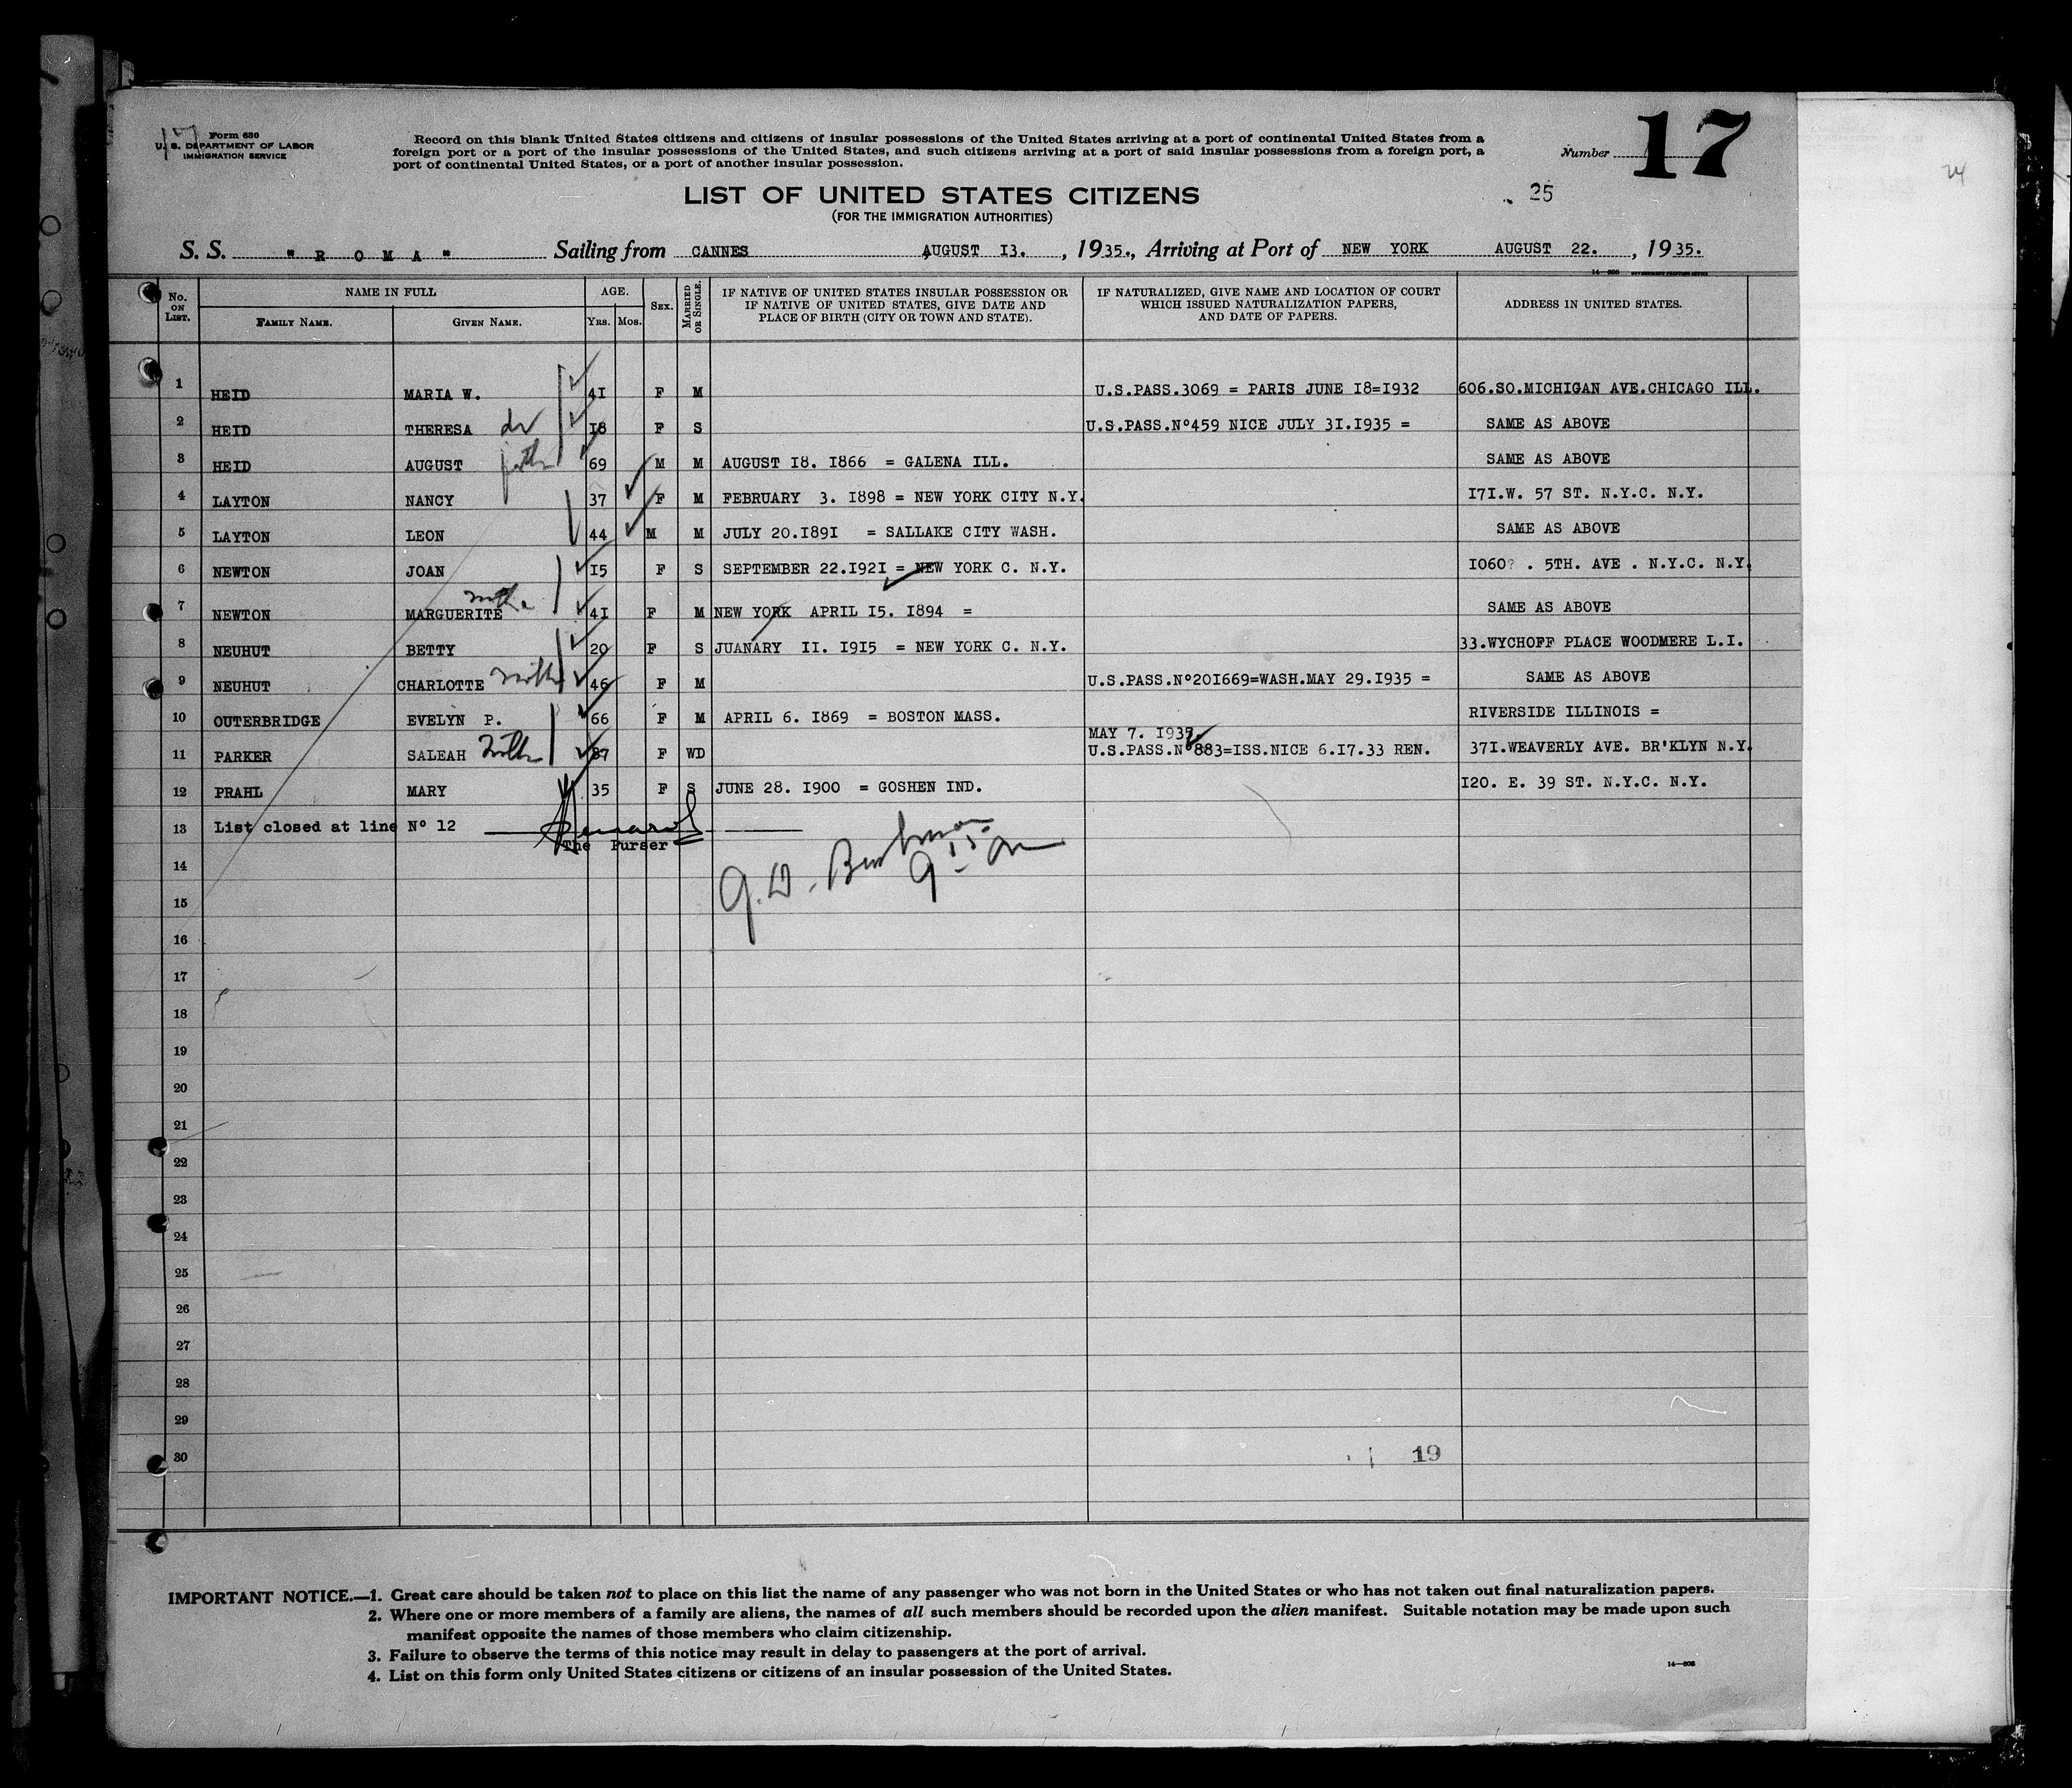 Form 630
U. S. DEPARTMENT OF LABOR
IMMIGRATION SERVICE
Record on this blank United States citizens and citizens of insular possessions of the United States arriving at a port of continental United States from a
foreign port or a port of the insular possessions of the United States, and such citizens arriving at a port of said insular possessions from a foreign port, a
port of continental United States, or a port of another insular possession.
Number 17
24
LIST OF UNITED STATES CITIZENS
(FOR THE IMMIGRATION AUTHORITIES)
25
S. S. "R O M A" Sailing from CANNES AUGUST 13. , 1935., Arriving at Port of NEW YORK AUGUST 22. , 1935.
No. ON LIST. NAME IN FULL FAMILY NAME. GIVEN NAME. AGE. YRS. MOS. SEX. MARRIED OR SINGLE. IF NATIVE OF UNITED STATES INSULAR POSSESSION OR IF NATIVE OF UNITED STATES, GIVE DATE AND PLACE OF BIRTH (CITY OR TOWN AND STATE). IF NATURALIZED, GIVE NAME AND LOCATION OF COURT WHICH ISSUED NATURALIZATION PAPERS, AND DATE OF PAPERS. ADDRESS IN UNITED STATES.
1 HEID MARIA W. 41 F M U.S.PASS.3069 = PARIS JUNE 18=1932 606.SO.MICHIGAN AVE.CHICAGO ILL.
2 HEID THERESA 18 F S U.S.PASS.Nº459 NICE JULY 31.1935 = SAME AS ABOVE
3 HEID AUGUST 69 M M AUGUST 18. 1866 = GALENA ILL. SAME AS ABOVE
4 LAYTON NANCY 37 F M FEBRUARY 3. 1898 = NEW YORK CITY N.Y. 171.W. 57 ST. N.Y.C. N.Y.
5 LAYTON LEON 44 M M JULY 20.1891 = SALLAKE CITY WASH. SAME AS ABOVE
6 NEWTON JOAN 15 F S SEPTEMBER 22.1921 = NEW YORK C. N.Y. 1060? . 5TH. AVE . N.Y.C. N.Y.
7 NEWTON MARGUERITE 41 F M NEW YORK APRIL 15. 1894 = SAME AS ABOVE
8 NEUHUT BETTY 20 F S JUANARY 11. 1915 = NEW YORK C. N.Y. 33.WYCHOFF PLACE WOODMERE L.I.
9 NEUHUT CHARLOTTE 46 F M U.S.PASS.Nº201669=WASH.MAY 29.1935 = SAME AS ABOVE
10 OUTERBRIDGE EVELYN P. 66 F M APRIL 6. 1869 = BOSTON MASS. RIVERSIDE ILLINOIS =
MAY 7. 1935.
11 PARKER SALEAH 87 F WD U.S.PASS.Nº883=ISS.NICE 6.17.33 REN. 371.WEAVERLY AVE. BR'KLYN N.Y.
12 PRAHL MARY 35 F S JUNE 28. 1900 = GOSHEN IND. 120. E. 39 ST. N.Y.C. N.Y.
13 List closed at line Nº 12
The Purser
14
15
16
17
18
19
20
21
22
23
24
25
26
27
28
29
30
19
IMPORTANT NOTICE.—1. Great care should be taken not to place on this list the name of any passenger who was not born in the United States or who has not taken out final naturalization papers.
2. Where one or more members of a family are aliens, the names of all such members should be recorded upon the alien manifest. Suitable notation may be made upon such
manifest opposite the names of those members who claim citizenship.
3. Failure to observe the terms of this notice may result in delay to passengers at the port of arrival.
4. List on this form only United States citizens or citizens of an insular possession of the United States.